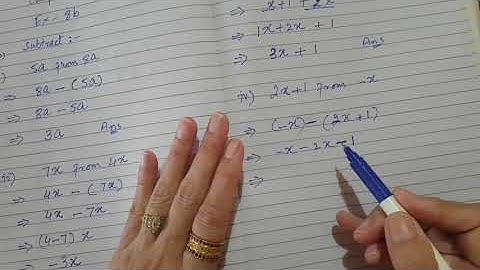 Ex - 8b
Subtract :-
5a from 8a
⇒ 8a - (5a)
⇒ 8a - 5a
⇒ 3a Ans
7x from 4x
⇒ 4x - (7x)
⇒ 4x - 7x
⇒ (4-7) x
⇒ -3x
⇒ x+1 + 2x
⇒ 1x+2x + 1
⇒ 3x + 1 Ans
iv) 2x+1 from -x
⇒ (-x) - (2x+1)
⇒ -x - 2x - 1
⇒